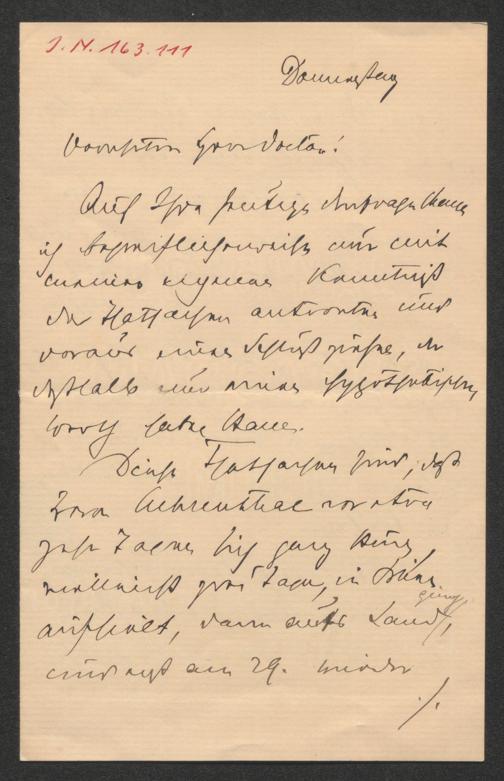 J. N. 163.111
Donnerstag
Verehrter Herr Doctor!
Auf Ihre heutige Anfrage kann
ich begreiflicherweise nur mit
meiner eigenen Kenntniß
der Thatsachen antworten und
daraus einen Schluß ziehen, der
deßhalb nur einen hypothetischen
Werth haben kann.
Diese Thatsachen sind, daß
Baron Aehrenthal vor etwa
zehn Tagen hie ganz kurz,
vielleicht zwei Tage, in Wien
aufhielt, dann aufs Land ging,
und erst am 29. wieder
./.